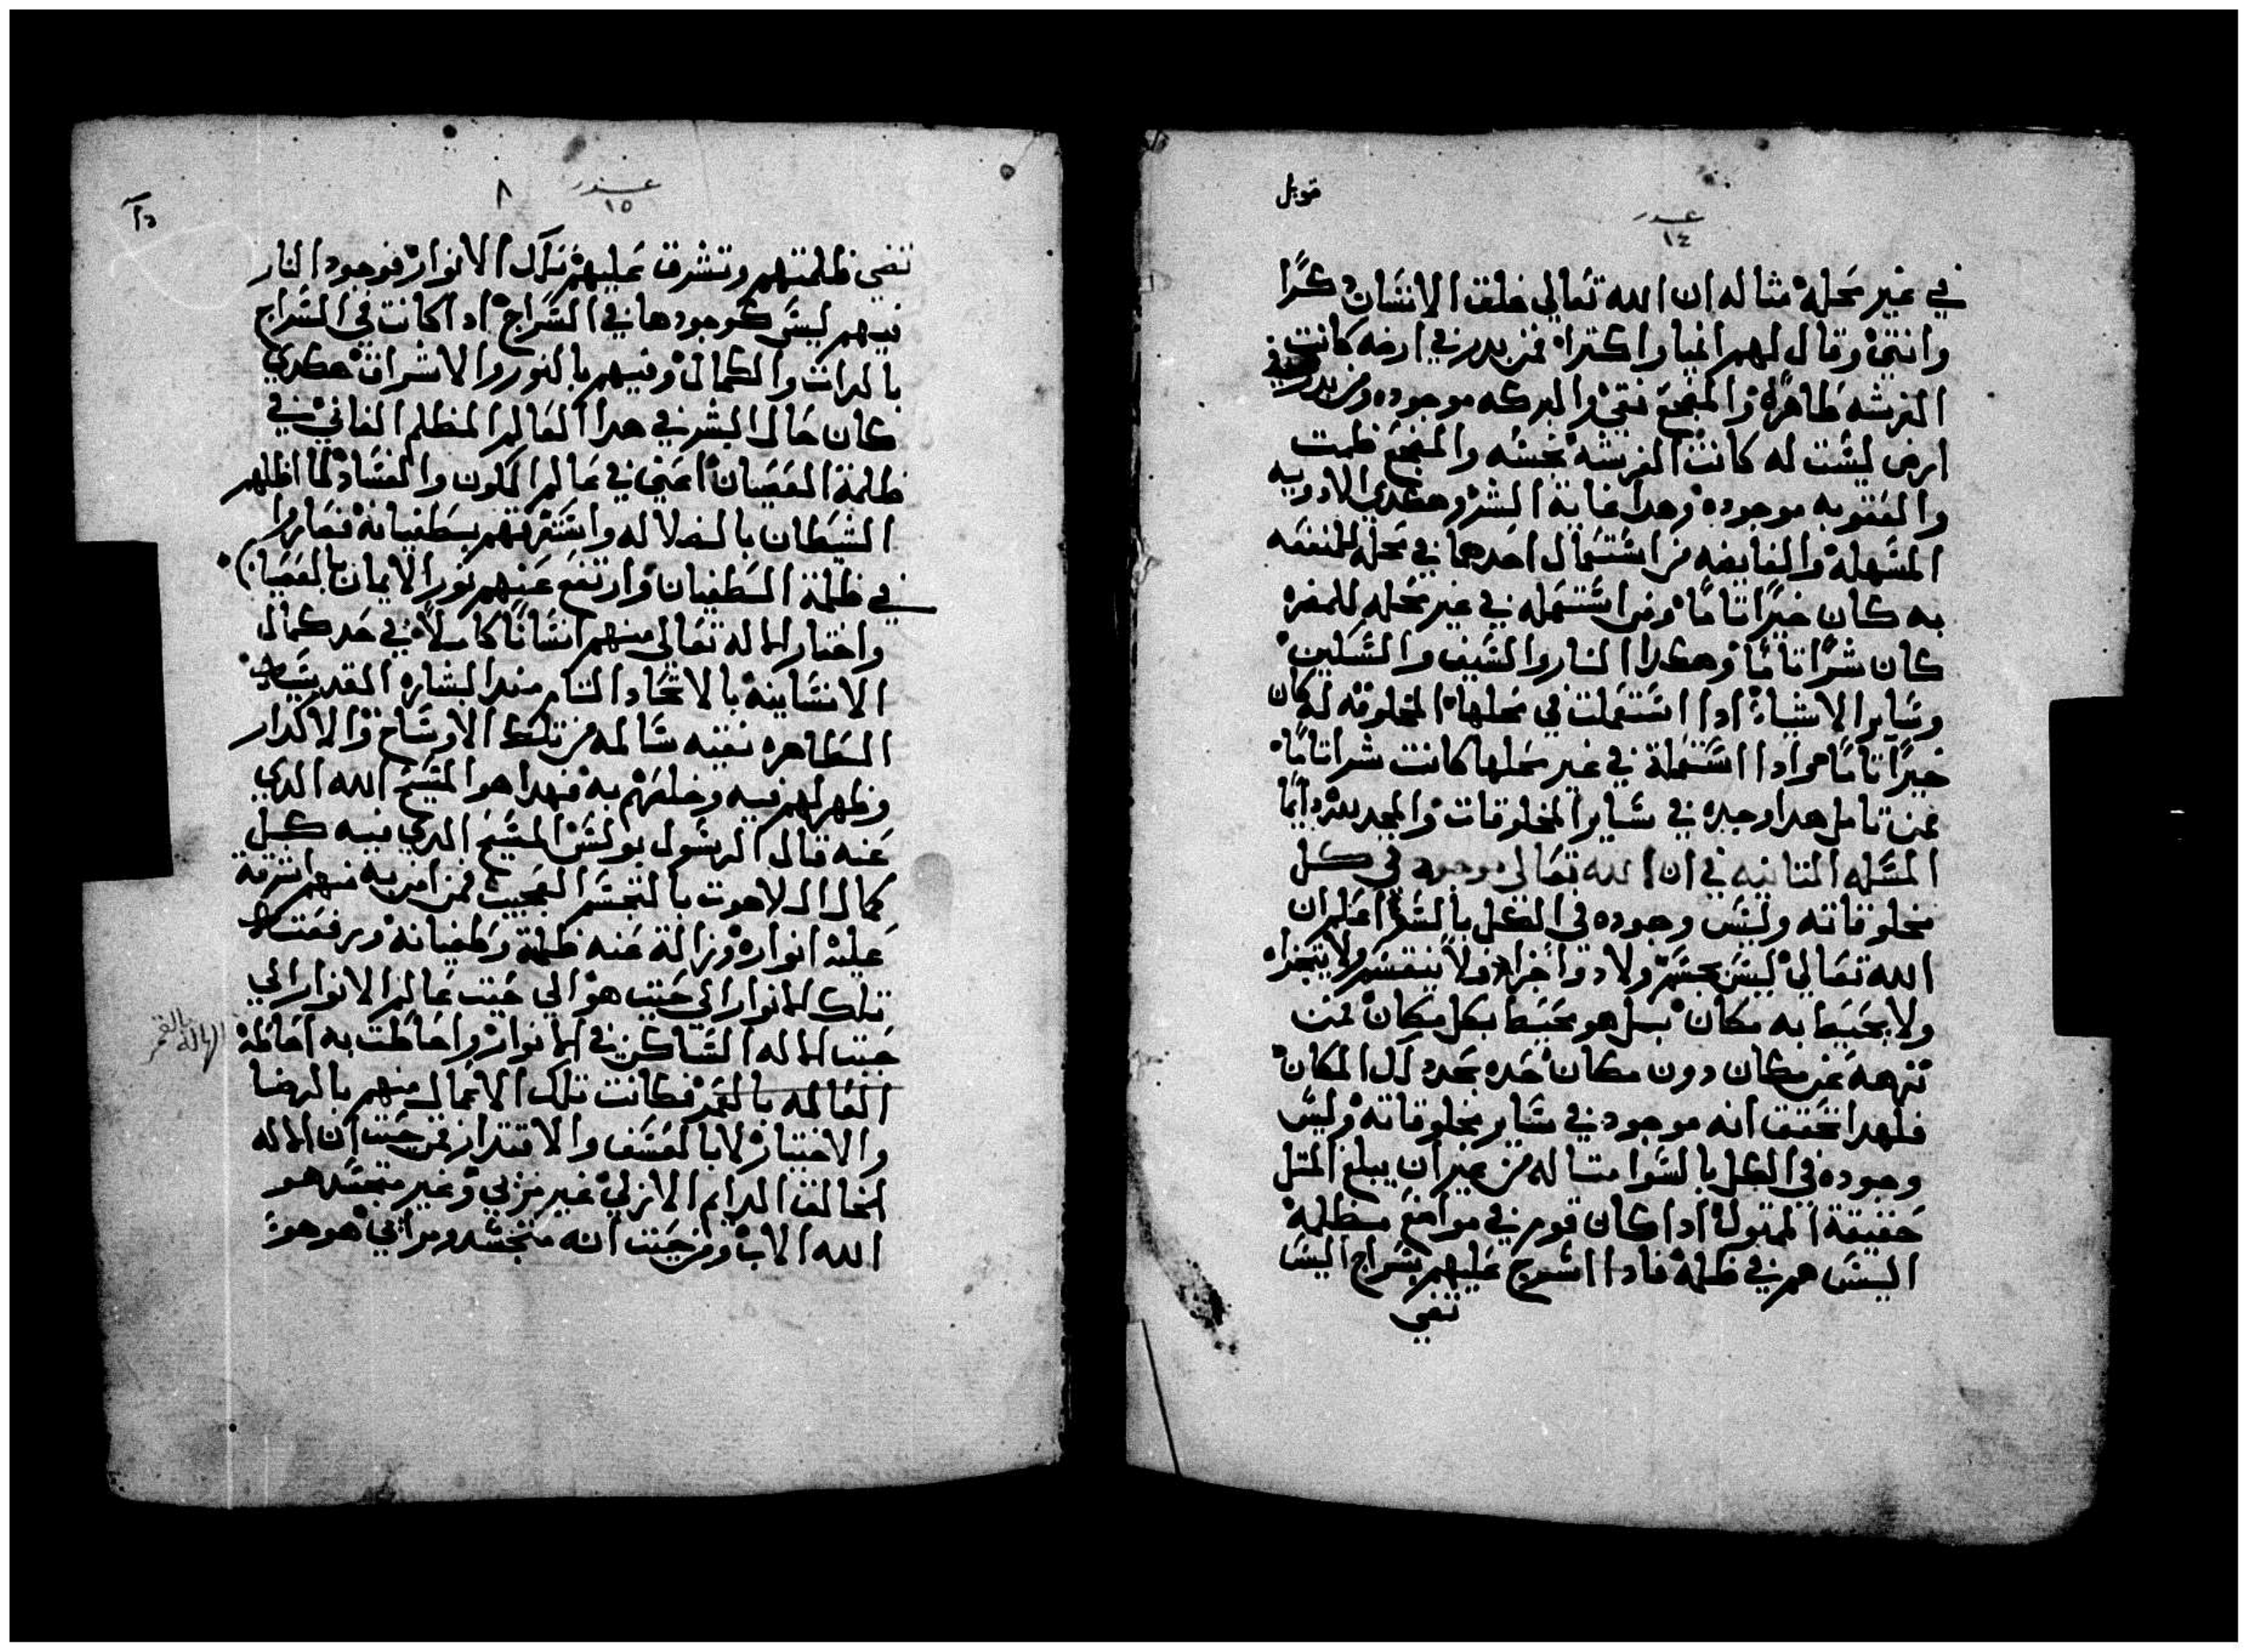 قوبل
عدد
١٤
في غير محله مثاله ان الله تعالي خلق الانسان دكرًا
وانتي وقال لهم انميا واكترا فمن بدر في ارضه كانت
الفرشه طاهرة والمضجع نقي والبركه موجوده ومن بدر في
ارض ليست له كانت الفرشه نجسه والمضجع
والعقوبه موجوده وهدا غاية الشر وهكدي الادويه
المسهله والقابضه من استعمال احدها في محله للمنفعه
به كان خيرًا تامًا ومن استعمله في غير محله للمضره
كان شرًا تامًا وهكدا النار والسيف والسكين
وساير الاشياء ادا استعملت في محلها المخلوقه له كان
خيرًا تامًا وادا استعملة في غير محلها كانت شرا تامًا
فمن تامل هدا وجده في ساير المخلوقات والمجد لله دايمًا
المسله التانيه في ان الله تعالى موجود في كل
مخلوقاته وليس وجوده في الكل بالسوا اعلم ان
الله تعالي ليس بجسم ولا دو اجزا ولا ينقسم ولا يتجزا
ولا يحيط به مكان بل هو محيط بكل مكان فمن
نزهه عن مكان دون مكان حده بحد دلك المكان
فلهدا تحقق انه موجود في ساير مخلوقاته وليس
وجوده في الكل بالسوا متاله من غير ان يبلغ المتل
حقيقة الممتول ادا كان قوم في مواضع مظلمة
اليس هم في ظلمة فادا اسرج عليهم بسراج اليس
تضي
عدد
١٥
٨
تضي ظلمتهم وتشرق عليهم تلك الانوار فوجود النار
فيهم ليس كوجودها في السراج اد كانت في السراج
بالدات والكمال وفيهم بالنور والاشراق هكدي
كان حال البشر في هدا العالم المظلم الفاني في
ظلمة العصيان اعني في عالم الكون والفساد لما اظلهم
الشيطان بالضلاله واستغرقهم بسطغيانه فصاروا
في ظلمة الطغيان وارتفع عنهم نور الايمان بالعصيان
واختار الاله تعالي منهم انسانًا كاملاً في حد كمال
الانسانية بالاتحاد التام مند البشاره القديسه
الطاهره نقيه سالمه من تلك الاوساخ والاكدار
وظهر لهم فيه وخلصهم به فهدا هو المسيح الله الدي
عنه قال الرسول بولس المسيح الدي فيه كل
كمال اللاهوت بالتجسم العجيب فمن امن به منهم اشرقة
عليه انواره وزالة عنه ظلمة وطغيانه ورفعته
تلك الانوار الي حيت هو الي حيت عالم الانوار الي
حيت الاله الساكن في الانوار واحاطت به احاطة
الهالة بالقمر
العالمه بالقمر فكانت تلك الاعمال منهم بالرضا
والاختيار لا بالعسف والاقتدار فمن حيت ان الاله
الخالق الدايم الازلي غير مري وغير متجسد هو
الله الاب ومن حيت انه متجسد ومرائي هو هو